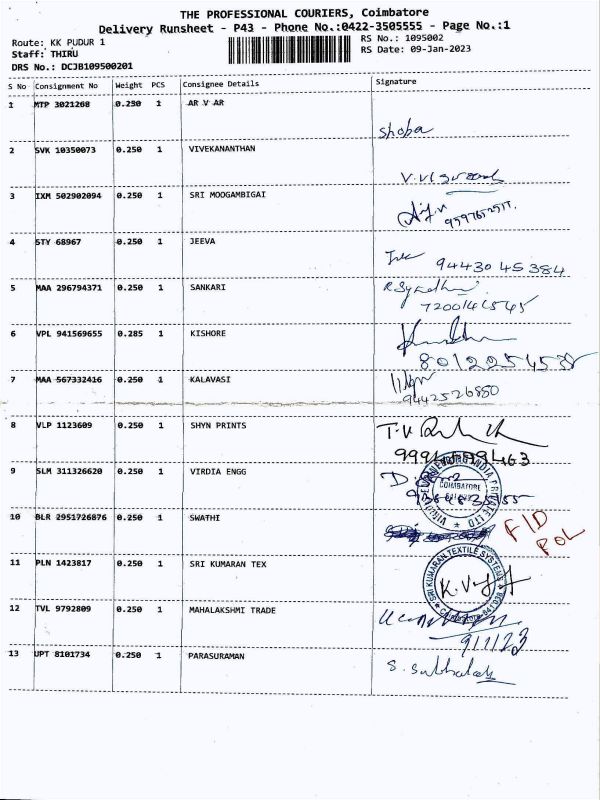 THE PROFESSIONAL COURIERS, Coimbatore
Delivery Runsheet - P43 - Phone No.:0422-3505555 - Page No.:1
Route: KK PUDUR 1
Staff: THIRU
DRS No.: DCJB109500201
RS No.: 1095002
RS Date: 09-Jan-2023
S No Consignment No Weight PCS Consignee Details Signature
1 MTP 3021268 0.250 1 AR V AR
Shoba
2 SVK 10350073 0.250 1 VIVEKANANTHAN
3 IXM 502902094 0.250 1 SRI MOOGAMBIGAI
4 STY 68967 0.250 1 JEEVA
94430 45384
5 MAA 296794371 0.250 1 SANKARI
7200141545
6 VPL 941569655 0.285 1 KISHORE
7 MAA 567332416 0.250 1 KALAVASI
9442526850
8 VLP 1123609 0.250 1 SHYN PRINTS
9 SLM 311326620 0.250 1 VIRDIA ENGG
COIMBATORE
10 BLR 2951726876 0.250 1 SWATHI
F/D
POL
11 PLN 1423817 0.250 1 SRI KUMARAN TEX
SRI KUMARAN TEXTILE SYSTEMS
12 TVL 9792809 0.250 1 MAHALAKSHMI TRADE
9/1/23
13 UPT 8101734 0.250 1 PARASURAMAN